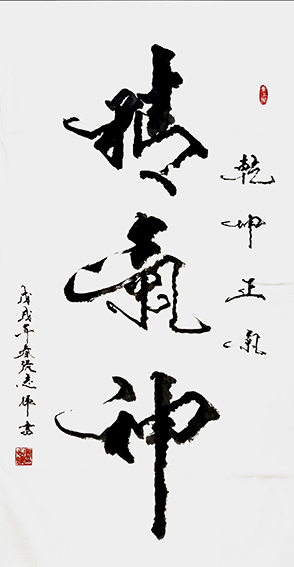 乾坤正氣
精氣神
戊戌年春張志偉書